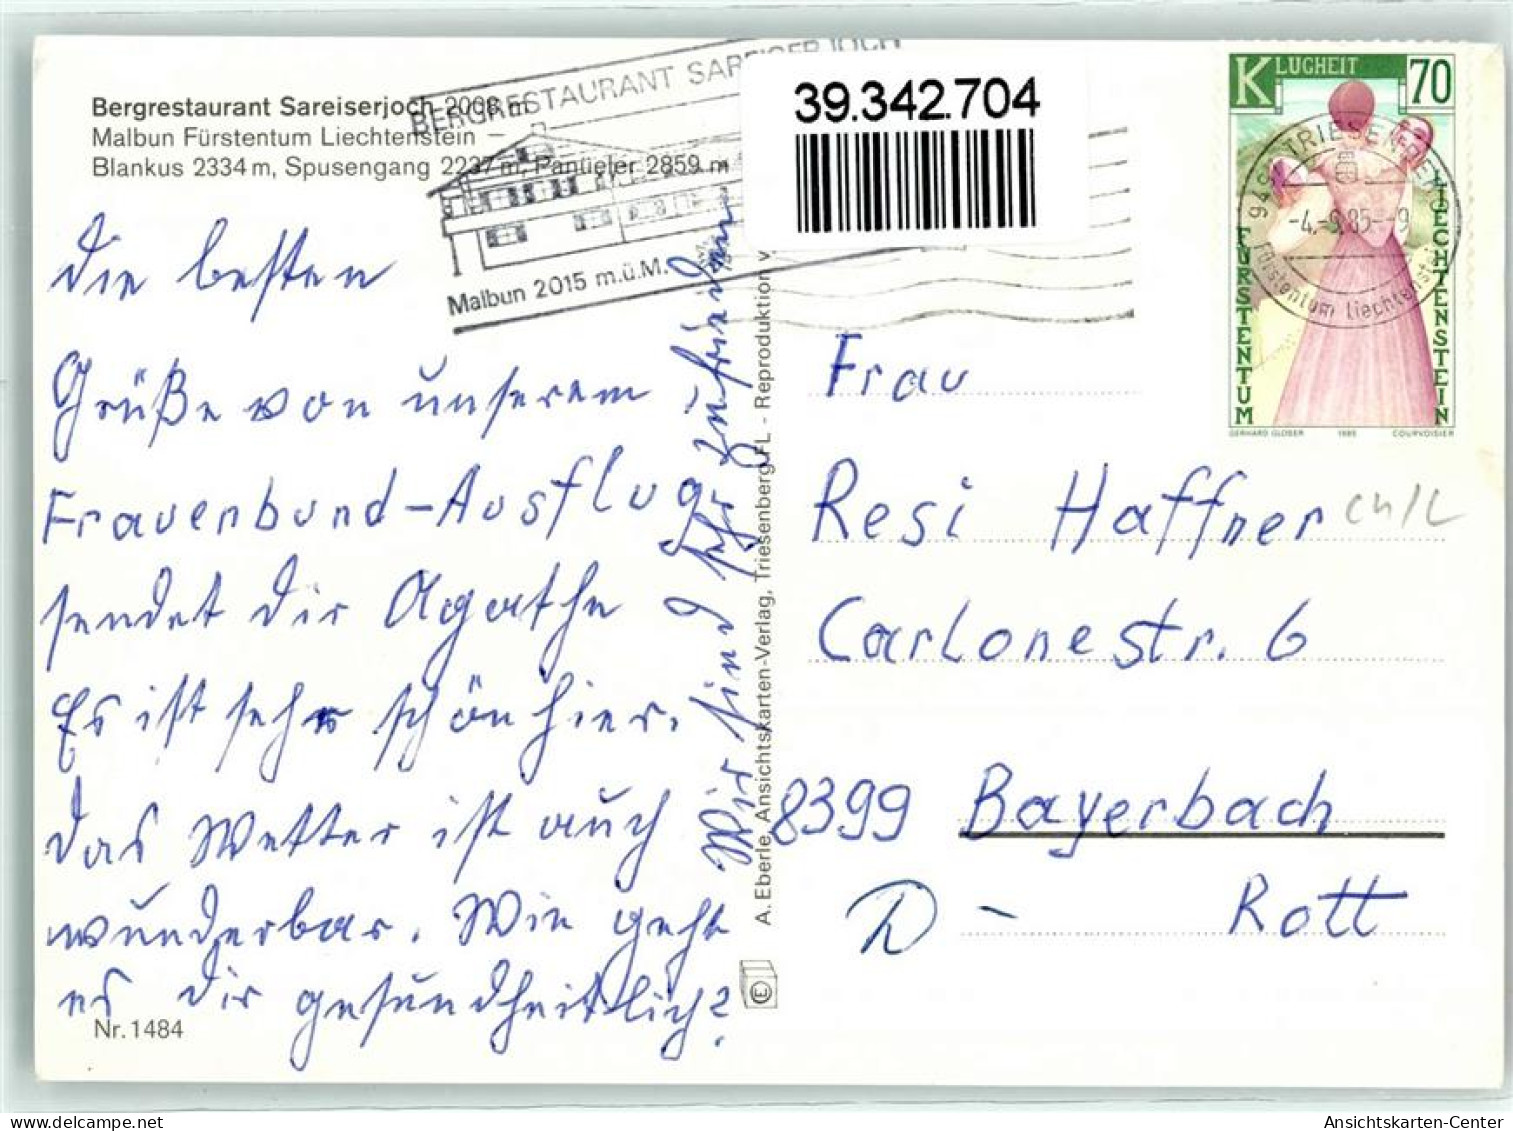 Bergrestaurant Sareiserjoch 2008 m
Malbun Fürstentum Liechtenstein –
Blankus 2334 m, Spusengang 2237 m, Panüeler 2859 m
BERGRESTAURANT SAREISERJOCH
Malbun 2015 m.ü.M.
39.342.704
KLUGHEIT 70
FÜRSTENTUM LIECHTENSTEIN
GERHARD GLOSER 1985 COURVOISIER
9497 TRIESENBERG
-4.-9.85--9
Fürstentum Liechtenstein
die besten
Grüße von unserem
Frauenbund-Ausflug
sendet dir Agathe
Es ist sehr schön hier.
Das Wetter ist auch
wunderbar. Wie geht
es dir gesundheitlich?
Wir sind sehr zufrieden
A. Eberle, Ansichtskarten-Verlag, Triesenberg FL - Reproduktion v
Frau
Resi Haffner
Carlonestr. 6
8399 Bayerbach
D - Rott
Nr. 1484
E
Ansichtskarten-Center